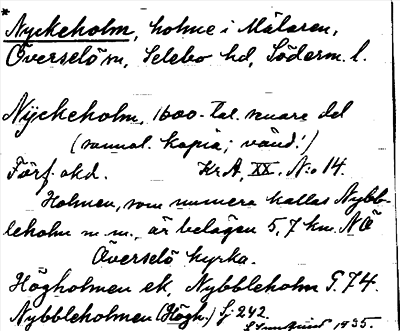 * Nyckeholm, holme i Mälaren,
Överselö sn, Selebo hd, Söderm. l.
Nÿckeholm, 1600-tal. senare del
(samal. kopia; vänd!)
Förf. okd. Kr A, XX. N:o 14.
Holmen, som numera kallas Nybb-
leholm m.m., är belägen 5,7 km. NÖ
Överselö kyrka.
Högholmen ek, Nybbleholm G. 74.
Nybbleholmen (Högh.) Sj 242.
1935.